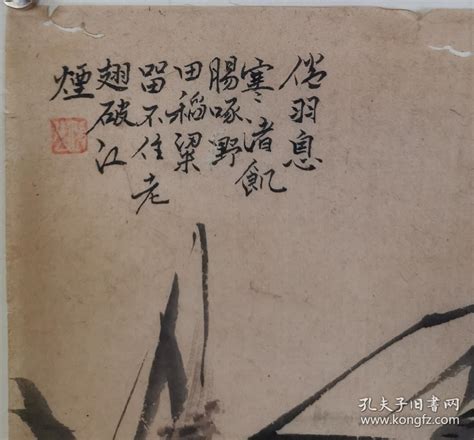 倦羽息
寒渚飢
腸啄野
田稻粱
留不住老
翅破江
煙
孔夫子旧书网
www.kongfz.com